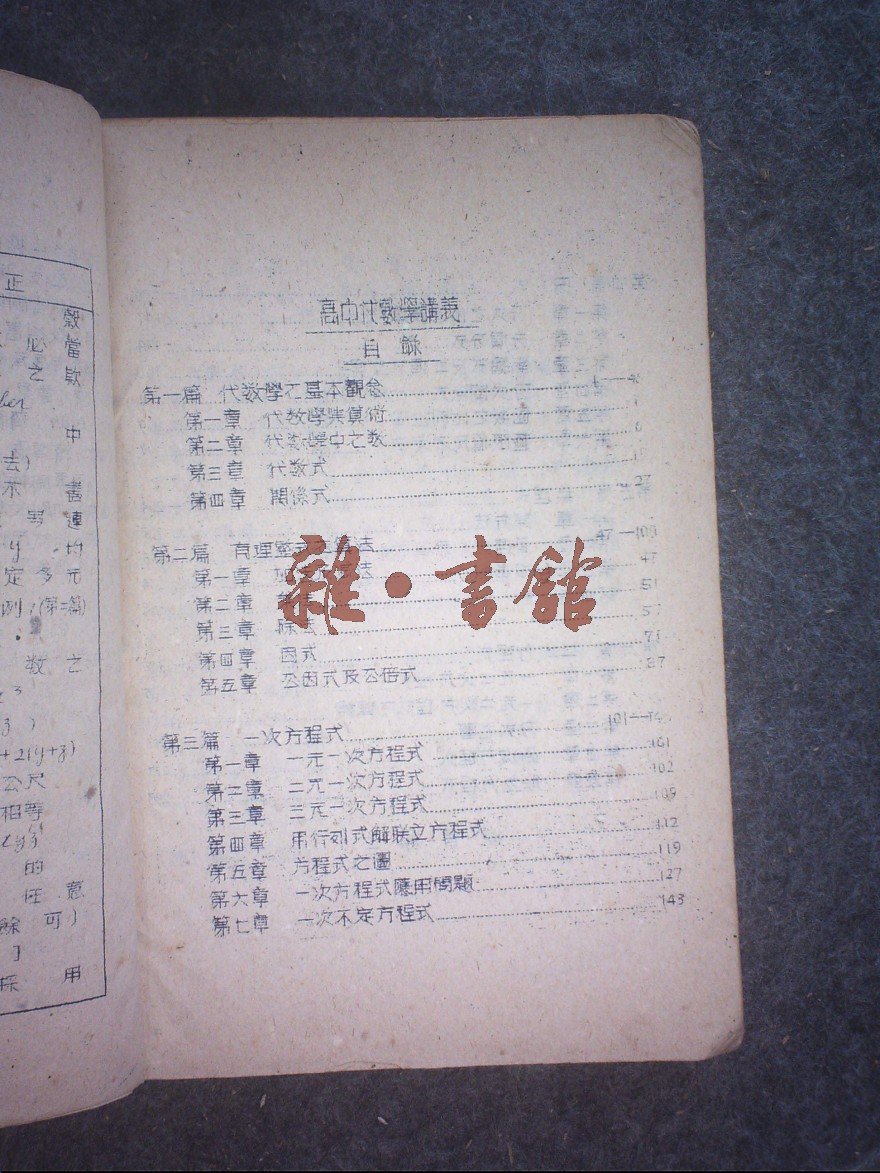 正
穀
必當
之欵
ber
中
去)
不盡
另連
y 均
定多元
例:(第二篇)
数之
3
z)
+2(y+z)
公尺
相等
的
任意
餘可)
]
採用
高中代數學講義
目錄
第一篇 代数學之基本觀念
第一章 代数學與算術
第二章 代数學中之数 6
第三章 代数式
第四章 關係式 27
第二篇 有理整式 47—100
第一章 法 47
第二章 51
第三章 除法
第四章 因式 71
第五章 公因式及公倍式 87
第三篇 一次方程式 101
第一章 一元一次方程式 101
第二章 二元一次方程式 102
第三章 三元一次方程式 109
第四章 用行列式解联立方程式 112
第五章 方程式之圖 119
第六章 一次方程式應用問題 127
第七章 一次不定方程式 143
雜·書館